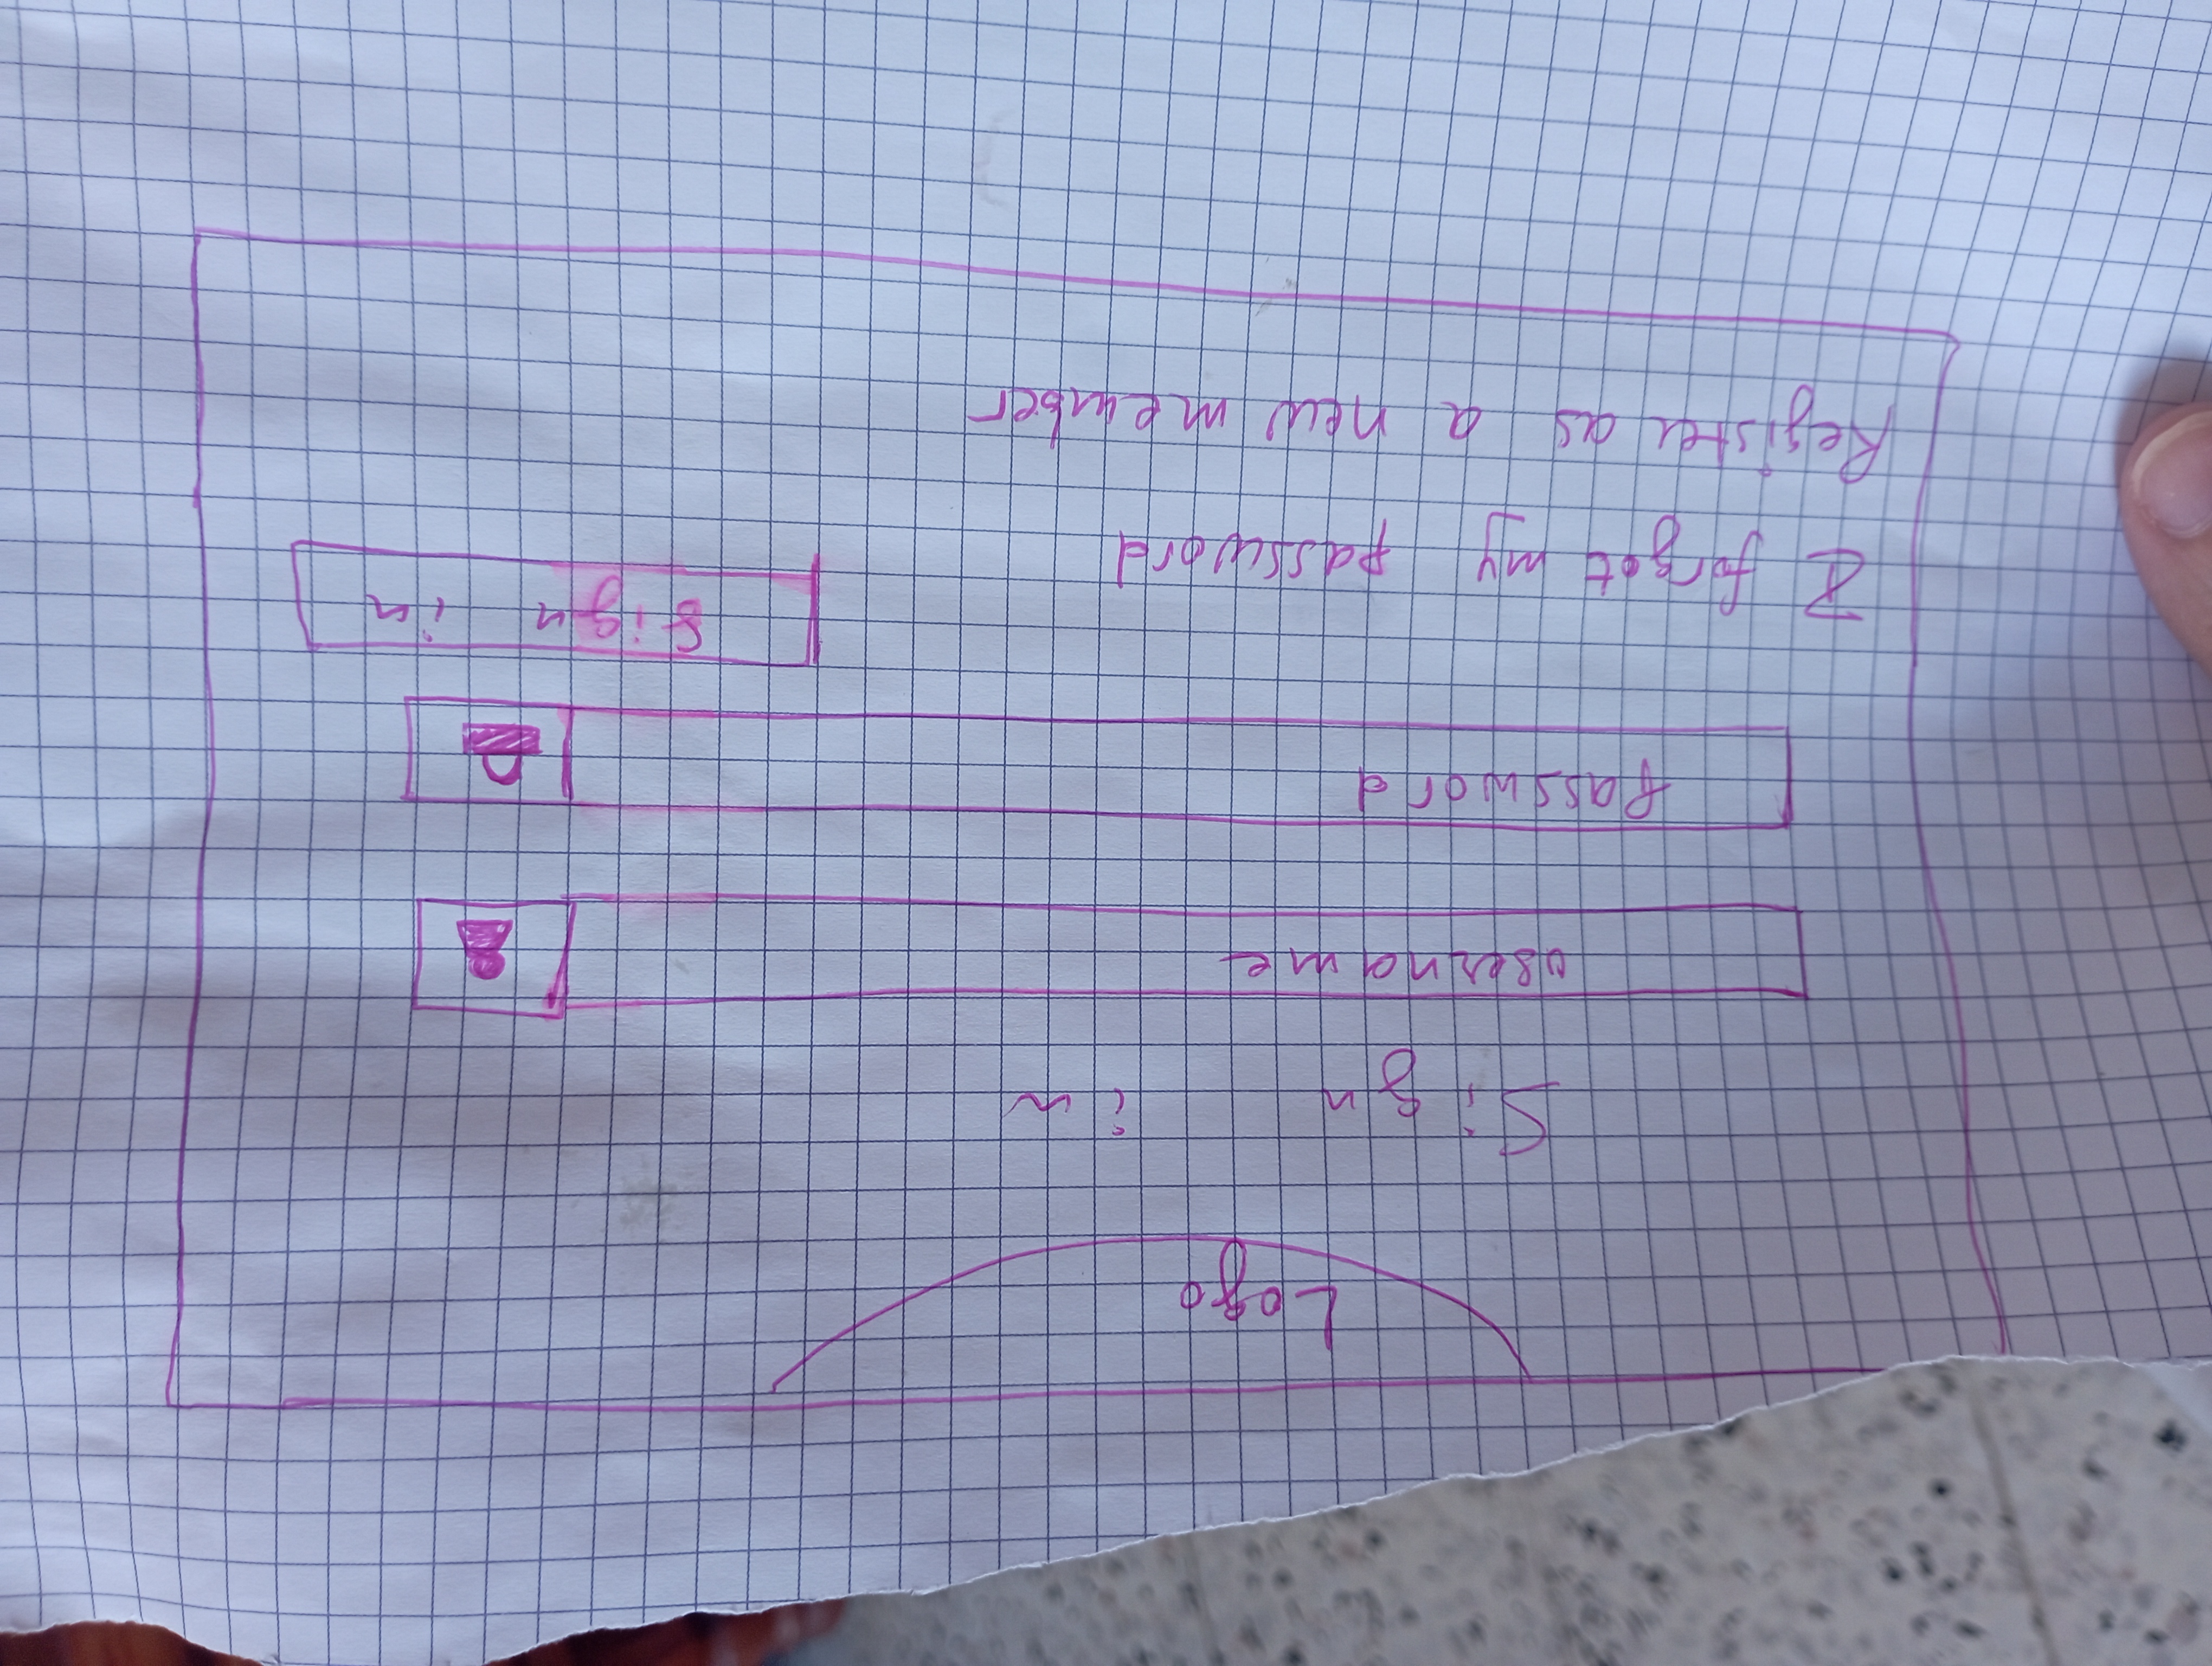 Logo
Sign in
osername
password
Sign in
I forgot my password
Register as a new member